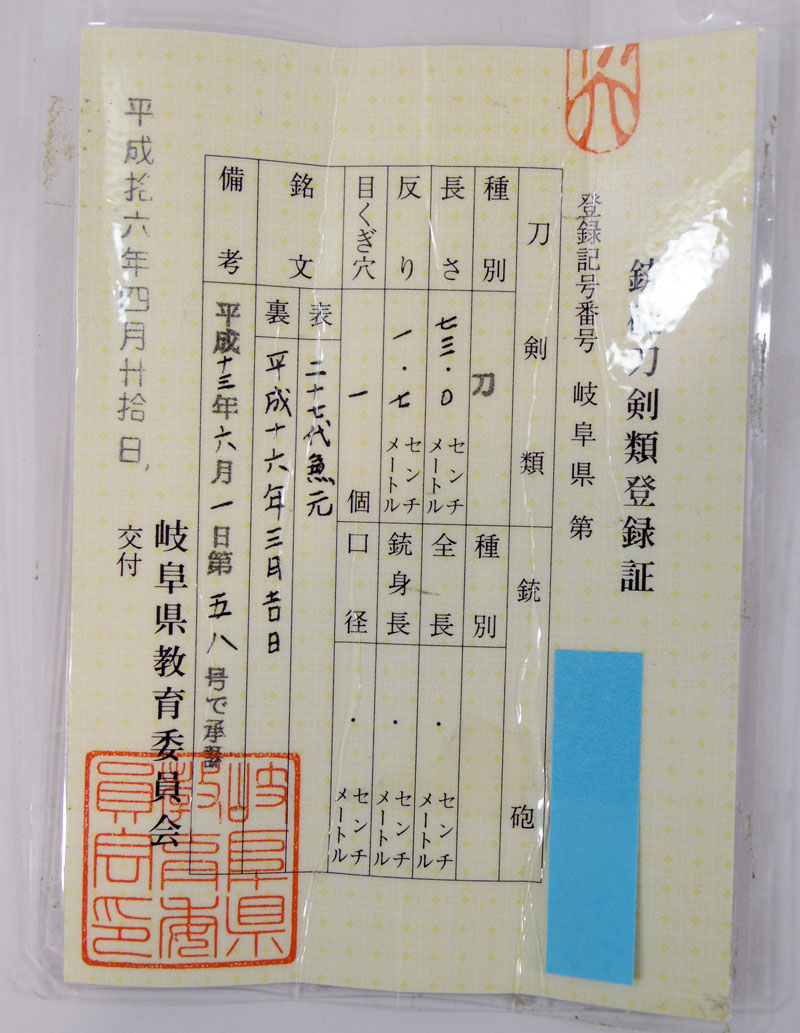 銃砲刀剣類登録証
登録記号番号 岐阜県 第
刀剣類
銃砲
種別 刀
種別
長さ 七三・〇 センチメートル
全長 ・ センチメートル
反り 一・七 センチメートル
銃身長 ・ センチメートル
目くぎ穴 一 個
口径 ・ センチメートル
銘文 表 二十七代兼元
裏 平成十六年三月吉日
備考 平成十三年六月一日第五八号で承認
岐阜県教育委員会
交付
平成拾六年四月廿拾日
岐阜県教育委員会印